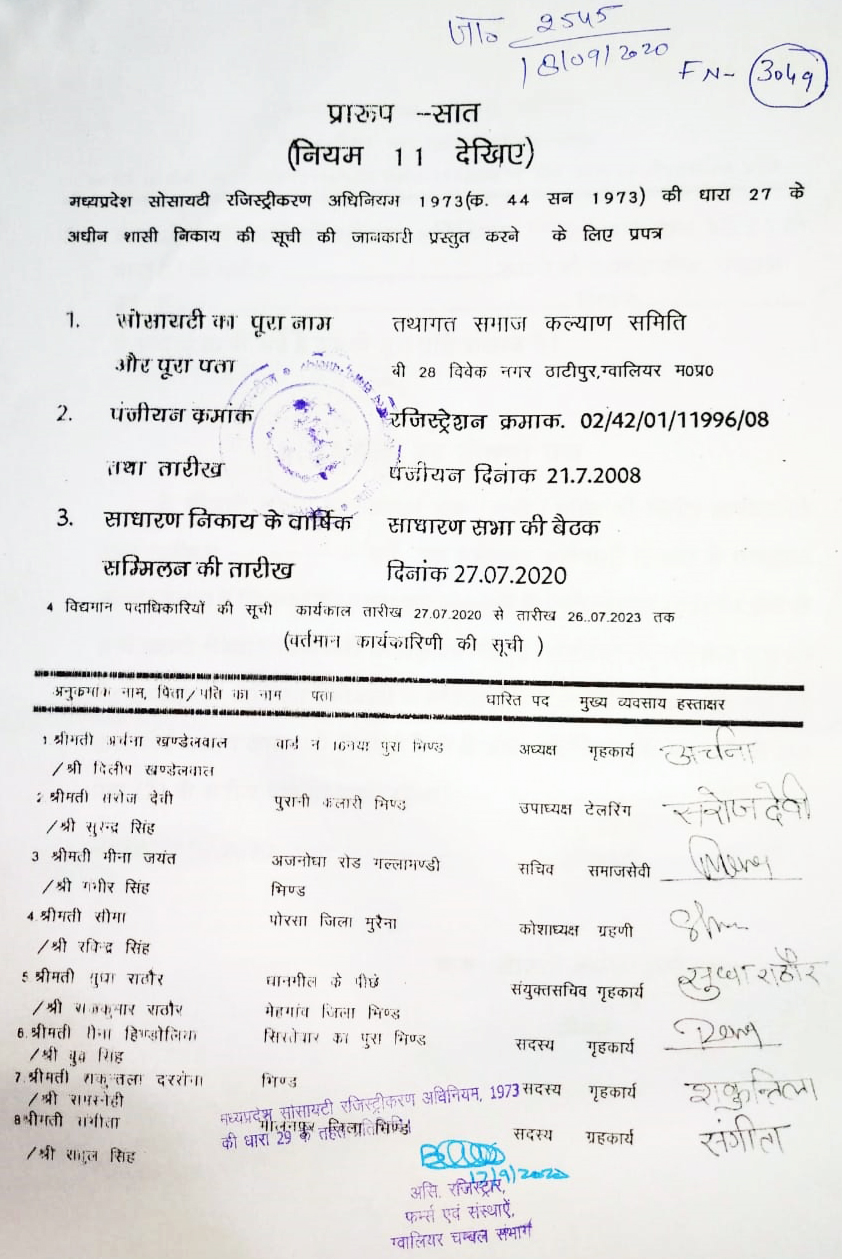 जा० 2545
18/09/2020
FN- 3049
प्रारुप –सात
(नियम 11 देखिए)
मध्यप्रदेश सोसायटी रजिस्ट्रीकरण अधिनियम 1973(क. 44 सन 1973) की धारा 27 के
अधीन शासी निकाय की सूची की जानकारी प्रस्तुत करने के लिए प्रपत्र
1. सोसायटी का पूरा नाम तथागत समाज कल्याण समिति
और पूरा पता बी 28 विवेक नगर ठाटीपुर,ग्वालियर म०प्र०
2. पंजीयन क्रमांक रजिस्ट्रेशन क्रमाक. 02/42/01/11996/08
तथा तारीख पंजीयन दिनाक 21.7.2008
3. साधारण निकाय के वार्षिक साधारण सभा की बैठक
सम्मिलन की तारीख दिनांक 27.07.2020
4 विद्यमान पदाधिकारियों की सूची कार्यकाल तारीख 27.07.2020 से तारीख 26..07.2023 तक
(वर्तमान कार्यकारिणी की सूची )
अनुकमाक नाम, पिता/पति का नाम पता धारित पद मुख्य व्यवसाय हस्ताक्षर
1 श्रीमती अर्चना खण्डेलवाल वार्ड न 16नया पुरा भिण्ड अध्यक्ष गृहकार्य अर्चना
/श्री दिलीप खण्डेलवाल
2 श्रीमती सरोज देवी पुरानी कलारी भिण्ड उपाध्यक्ष टेलरिंग सरोज देवी
/श्री सुरेन्द्र सिंह
3 श्रीमती मीना जयंत अजनोधा रोड गल्लामण्डी सचिव समाजसेवी
/श्री गभीर सिंह भिण्ड
4.श्रीमती सीमा पोरसा जिला मुरैना कोशाध्यक्ष ग्रहणी
/श्री रविन्द्र सिंह
5 श्रीमती सुधा राठौर के पीछे संयुक्तसचिव गृहकार्य सुधा राठौर
/श्री राजकुमार राठौर मेहगांव जिला भिण्ड
6.श्रीमती हिण्डोलिया का पुरा भिण्ड सदस्य गृहकार्य
/श्री सिंह
7.श्रीमती शकुन्तला भिण्ड सदस्य गृहकार्य शकुन्तिला
/श्री रामस्नेही
8श्रीमती संगीता जिला भिण्ड सदस्य ग्रहकार्य संगीता
/श्री राहुल सिंह
मध्यप्रदेश सोसायटी रजिस्ट्रीकरण अधिनियम, 1973
की धारा 29 के तहत
17/9/2020
असि. रजिस्ट्रार,
फर्म्स एवं संस्थाऐं,
ग्वालियर चम्बल संभाग